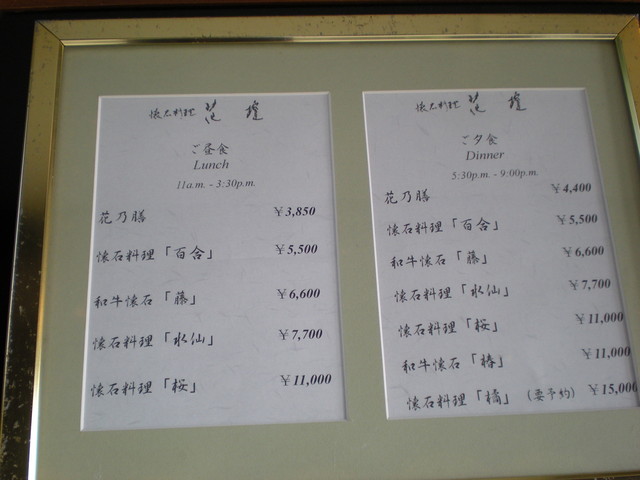 懐石料理
ご昼食
Lunch
11a.m. - 3:30p.m.
花乃膳 ¥3,850
懐石料理「百合」 ¥5,500
和牛懐石「藤」 ¥6,600
懐石料理「水仙」 ¥7,700
懐石料理「桜」 ¥11,000
懐石料理
ご夕食
Dinner
5:30p.m. - 9:00p.m.
花乃膳 ¥4,400
懐石料理「百合」 ¥5,500
和牛懐石「藤」 ¥6,600
懐石料理「水仙」 ¥7,700
懐石料理「桜」 ¥11,000
和牛懐石「椿」 ¥11,000
懐石料理「橘」(要予約) ¥15,000